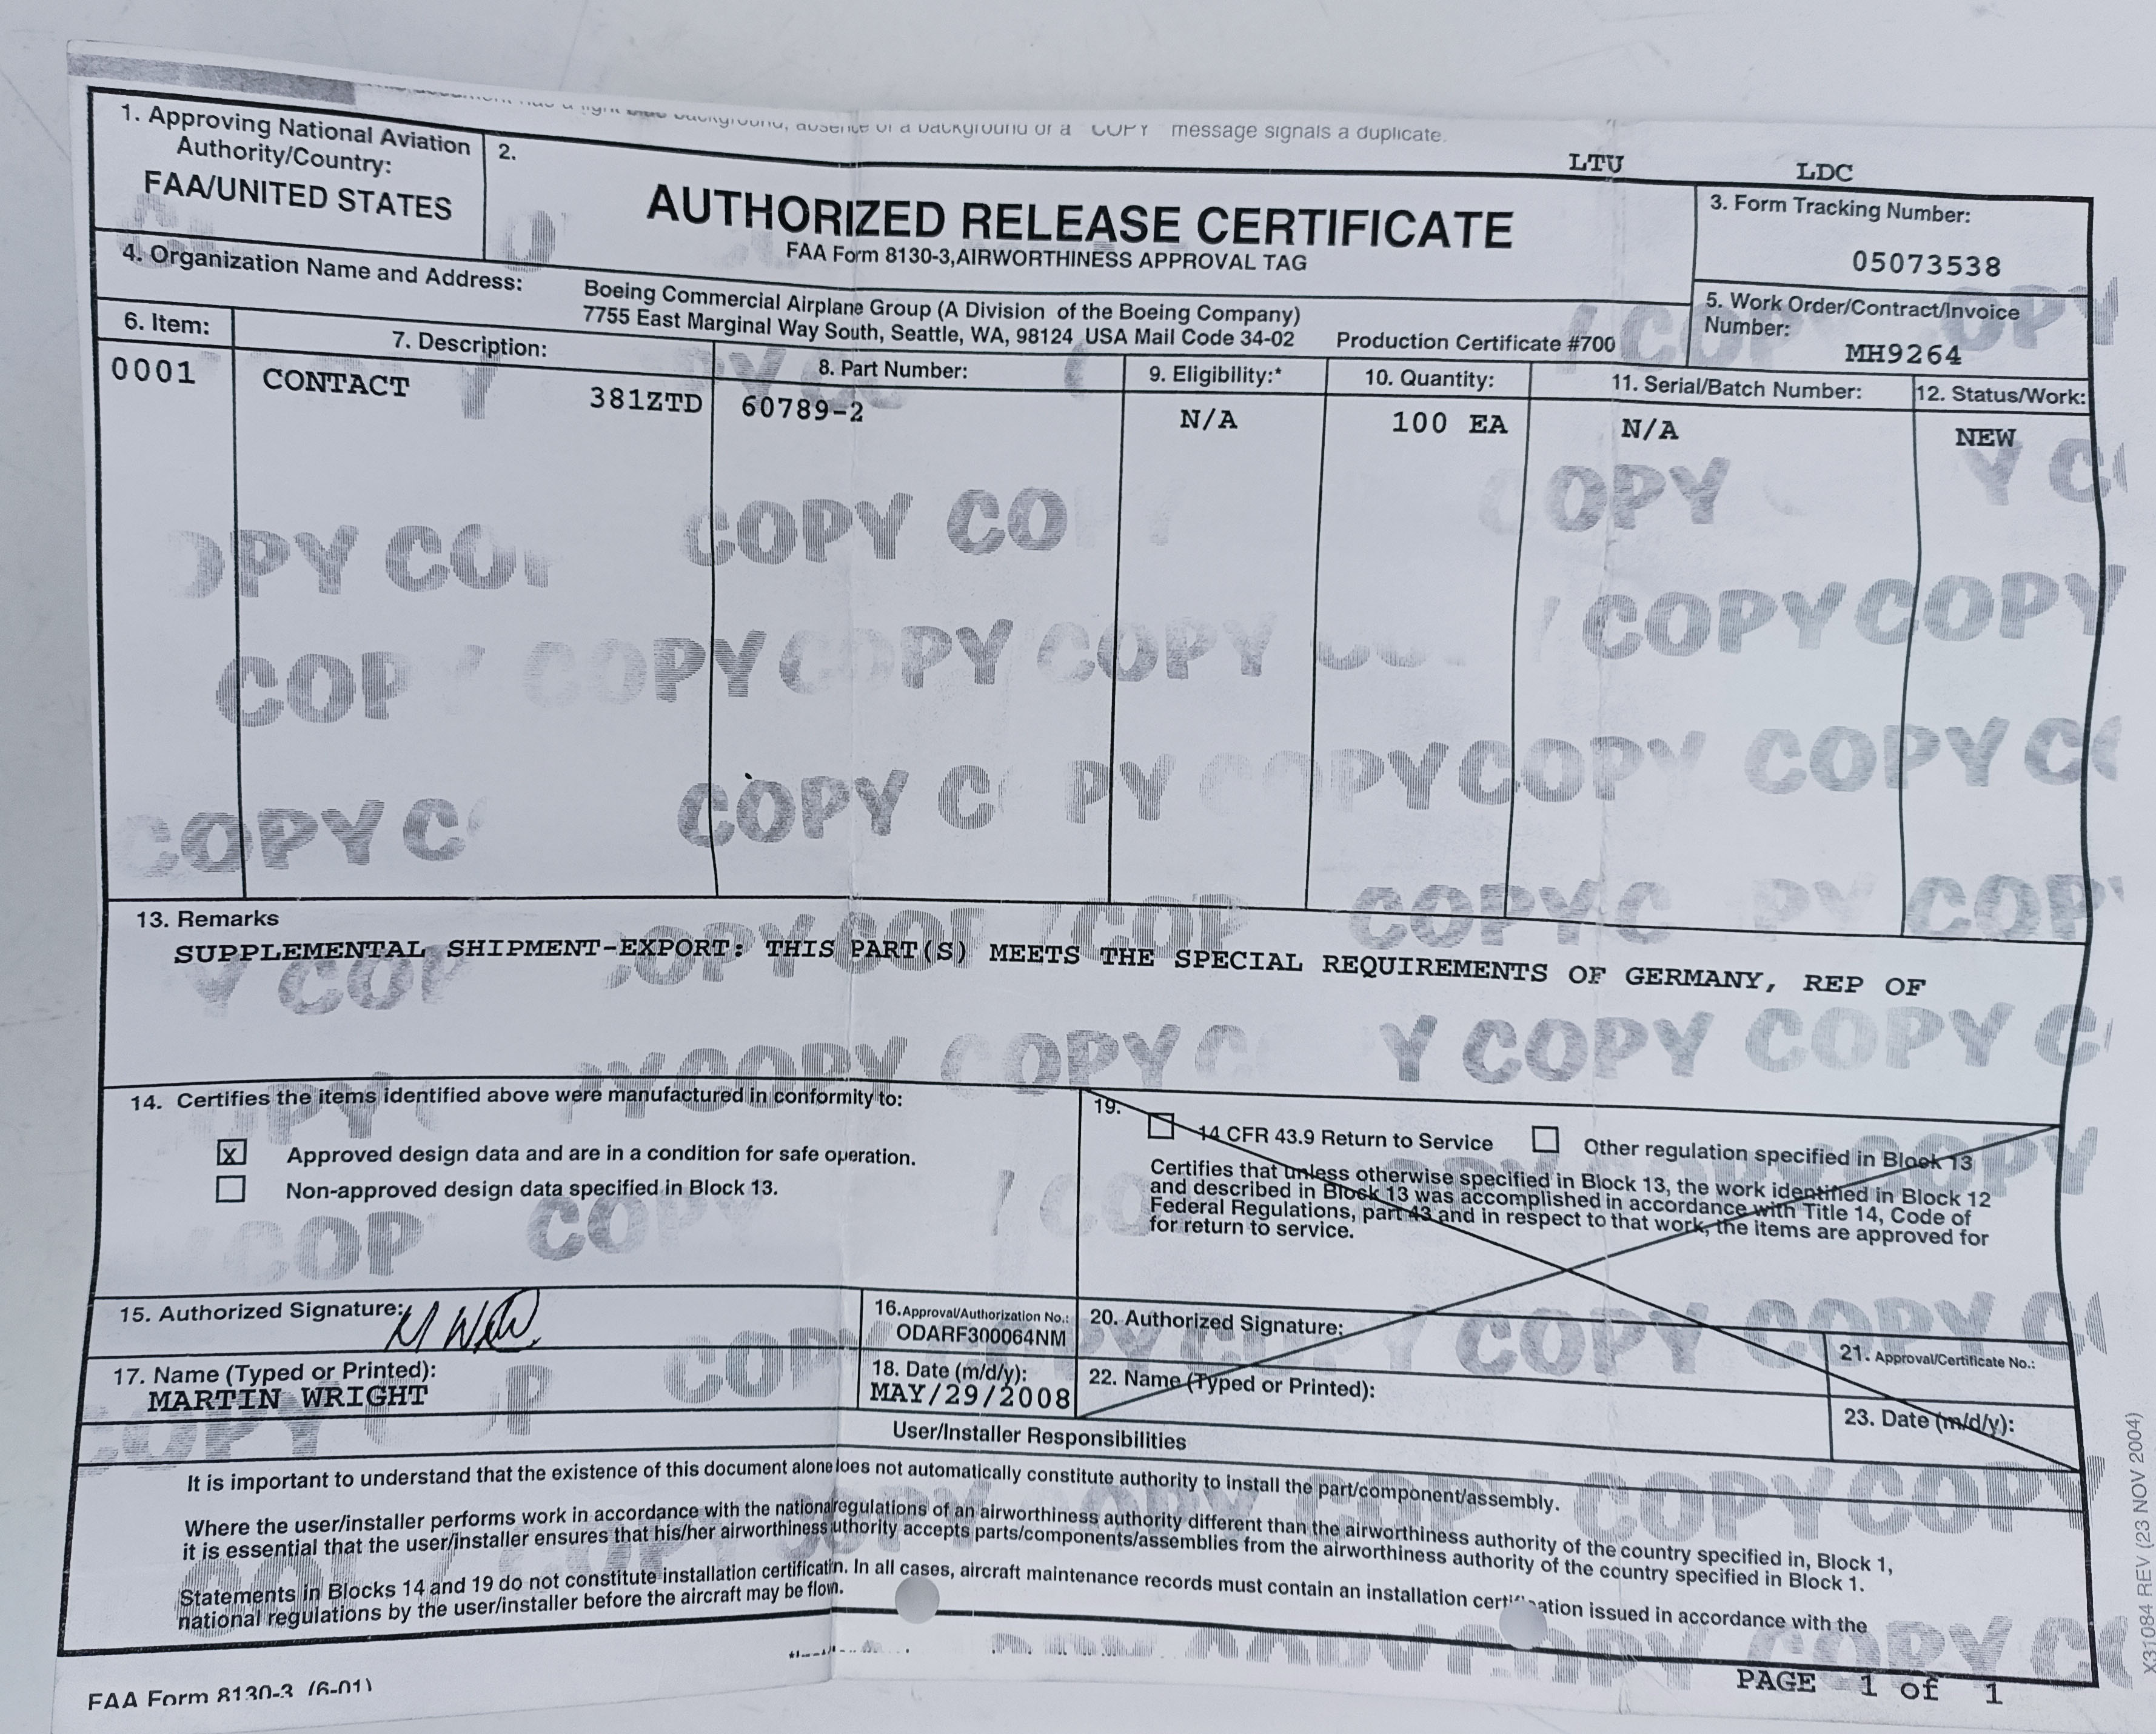 background, absence of a background or a "COPY" message signals a duplicate.
LTU LDC
1. Approving National Aviation Authority/Country:
FAA/UNITED STATES
2.
AUTHORIZED RELEASE CERTIFICATE
FAA Form 8130-3,AIRWORTHINESS APPROVAL TAG
3. Form Tracking Number:
05073538
4. Organization Name and Address:
Boeing Commercial Airplane Group (A Division of the Boeing Company)
7755 East Marginal Way South, Seattle, WA, 98124 USA Mail Code 34-02 Production Certificate #700
5. Work Order/Contract/Invoice
Number:
MH9264
6. Item: 7. Description: 8. Part Number: 9. Eligibility:* 10. Quantity: 11. Serial/Batch Number: 12. Status/Work:
0001 CONTACT 381ZTD 60789-2 N/A 100 EA N/A NEW
13. Remarks
SUPPLEMENTAL SHIPMENT-EXPORT: THIS PART(S) MEETS THE SPECIAL REQUIREMENTS OF GERMANY, REP OF
14. Certifies the items identified above were manufactured in conformity to:
x Approved design data and are in a condition for safe operation.
Non-approved design data specified in Block 13.
19.
14 CFR 43.9 Return to Service Other regulation specified in Block 13
Certifies that unless otherwise specified in Block 13, the work identified in Block 12
and described in Block 13 was accomplished in accordance with Title 14, Code of
Federal Regulations, part 43 and in respect to that work, the items are approved for
for return to service.
15. Authorized Signature:
16. Approval/Authorization No.:
ODARF300064NM
17. Name (Typed or Printed):
MARTIN WRIGHT
18. Date (m/d/y):
MAY/29/2008
20. Authorized Signature:
21. Approval/Certificate No.:
22. Name (Typed or Printed):
23. Date (m/d/y):
User/Installer Responsibilities
It is important to understand that the existence of this document alone oes not automatically constitute authority to install the part/component/assembly.
Where the user/installer performs work in accordance with the national regulations of an airworthiness authority different than the airworthiness authority of the country specified in, Block 1,
it is essential that the user/installer ensures that his/her airworthiness uthority accepts parts/components/assemblies from the airworthiness authority of the country specified in Block 1.
Statements in Blocks 14 and 19 do not constitute installation certificatin. In all cases, aircraft maintenance records must contain an installation certification issued in accordance with the
national regulations by the user/installer before the aircraft may be flown.
FAA Form 8130-3 (6-01)
PAGE 1 of 1
X31084 REV (23 NOV 2004)